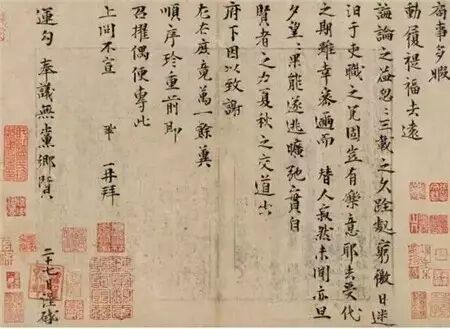 局事多暇
動履禔福去遠
誨論之益忽忽三載之久跧處窮徼日迷
汩于吏職之冗固豈有樂意耶去受代
之期雖幸密邇而替人寂然未聞亦旦
夕望望果能遂逃曠弛實自
賢者之力夏秋之交道出
府下因以致謝
左右庶竟萬一餘冀
順序珍重前即
召擢偶便專此
上問不宣 鞏再拜
運勾奉議無黨鄉賢 二十七日謹啓